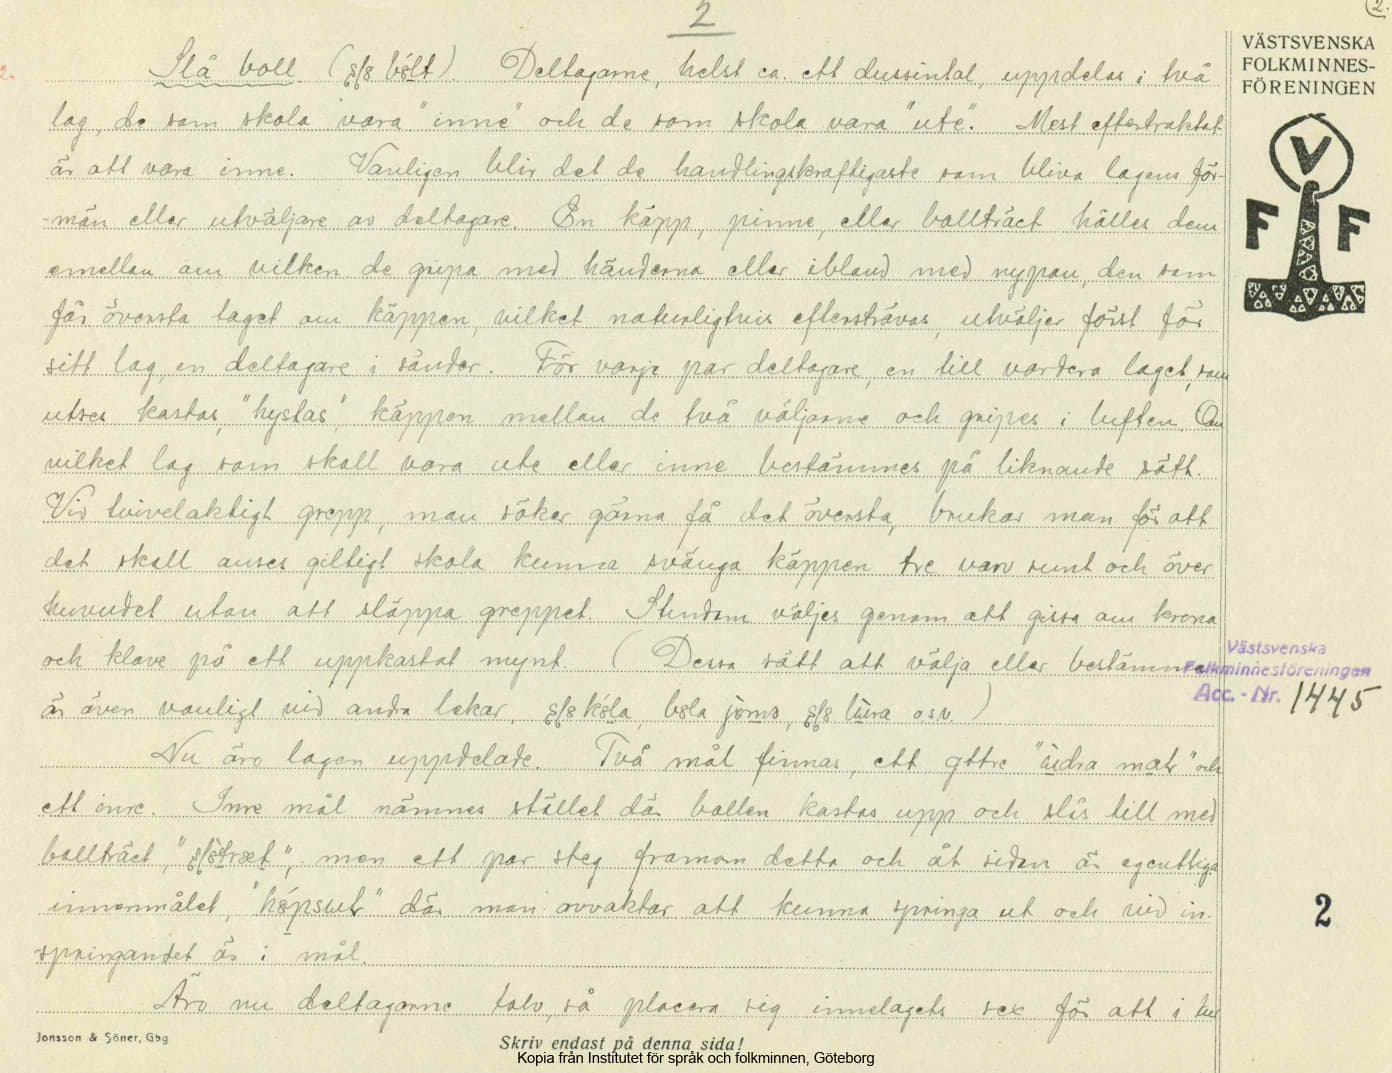 2
2.
2.
Slå boll ( ). Deltagarne, helst ca. ett dussintal, uppdelas i två
lag, de som skola vara "inne" och de som skola vara "ute". Mest eftertraktat
är att vara inne. Vanligen blir det de handlingskraftigaste som bliva lagens för-
-män eller utväljare av deltagare. En käpp, pinne, eller bollträet hålles dem
emellan om vilken de gripa med händerna eller ibland med nypan, den som
får översta taget om käppen, vilket naturligtvis eftersträvas, utväljer först för
sitt lag, en deltagare i sänder. För varje par deltagare, en till vardera laget, som
utses kastas, "hystas", käppen mellan de två väljarne och gripes i luften. Om
vilket lag som skall vara ute eller inne bestämmes på liknande sätt.
Vid tvivelaktigt grepp, man söker gärna få det översta, brukar man för att
det skall anses giltigt skola kunna svänga käppen tre varv runt och över
huvudet utan att släppa greppet. Stundom väljes genom att gissa om krona
och klave på ett uppkastat mynt. ( Dessa sätt att välja eller bestämma
är även vanligt vid andra lekar, osv. )
Nu äro lagen uppdelade. Två mål finnas, ett yttre " " och
ett inre. Inre mål nämnes stället där bollen kastas upp och slås till med
bollträet, " ", men ett par steg framom detta och åt sidan är egentliga
innermålet, " " där man avvaktar att kunna springa ut och vid in-
springandet är i mål.
Äro nu deltagarne tolv, så placera sig innelagets sex för att i tur
VÄSTSVENSKA
FOLKMINNES-
FÖRENINGEN
V
F F
Västsvenska
Folkminnesföreningen
Acc. - Nr. 1445
2
Jonsson & Söner, Gbg
Skriv endast på denna sida!
Kopia från Institutet för språk och folkminnen, Göteborg